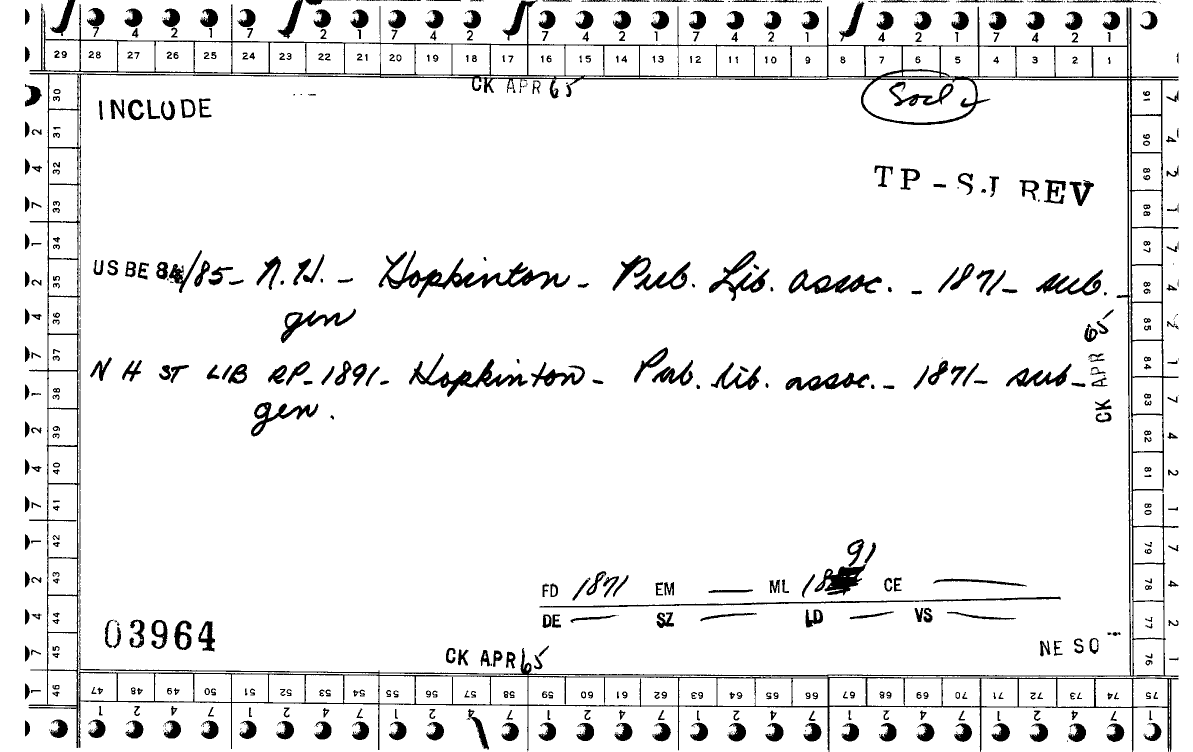 7 4 2 1 7 2 1 7 4 2 17 4 2 1 7 4 2 1 7 4 2 1 7 4 2 1
29 28 27 26 25 24 23 22 21 20 19 18 17 16 15 14 13 12 11 10 9 8 7 6 5 4 3 2 1
CK APR 65
INCLUDE
TP-SJ REV
US BE 84/85- N.H. - Hopkinton - Pub. Lib. assoc. - 1871 - sub. -
gen
N H ST LIB RP-1891- Hopkinton - Pub. lib. assoc. - 1871 - sub-
gen.
CK APR 65
91
FD 1871 EM — ML 18 CE —
DE — SZ — LD — VS —
03964
CK APR 65
NE SO
30 31 32 33 34 35 36 37 38 39 40 41 42 43 44 45 46
91 90 89 88 87 86 85 84 83 82 81 80 79 78 77 76
47 48 49 50 51 52 53 54 55 56 57 58 59 60 61 62 63 64 65 66 67 68 69 70 71 72 73 74 75